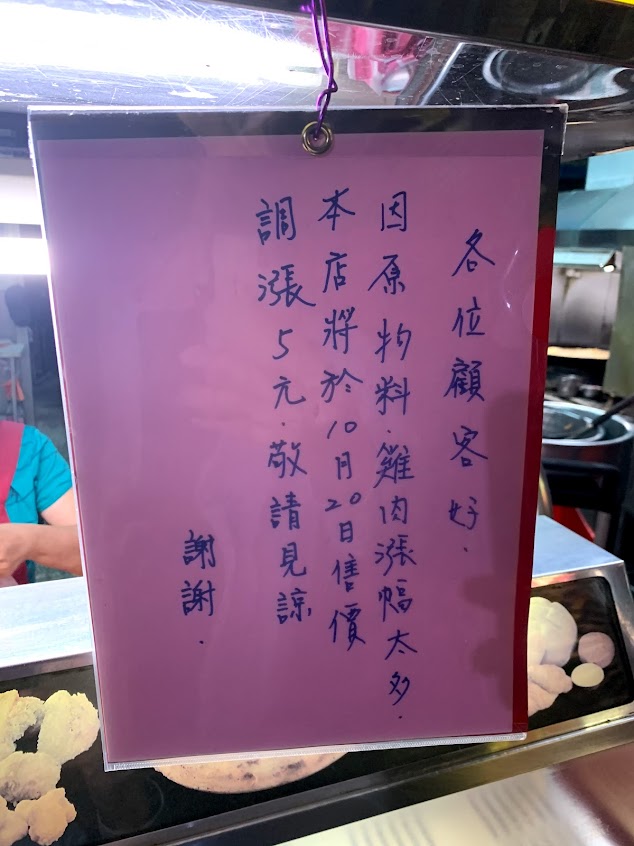 各位顧客好.
因原物料.雞肉漲幅太多.
本店將於10月20日售價
調漲5元.敬請見諒
謝謝.